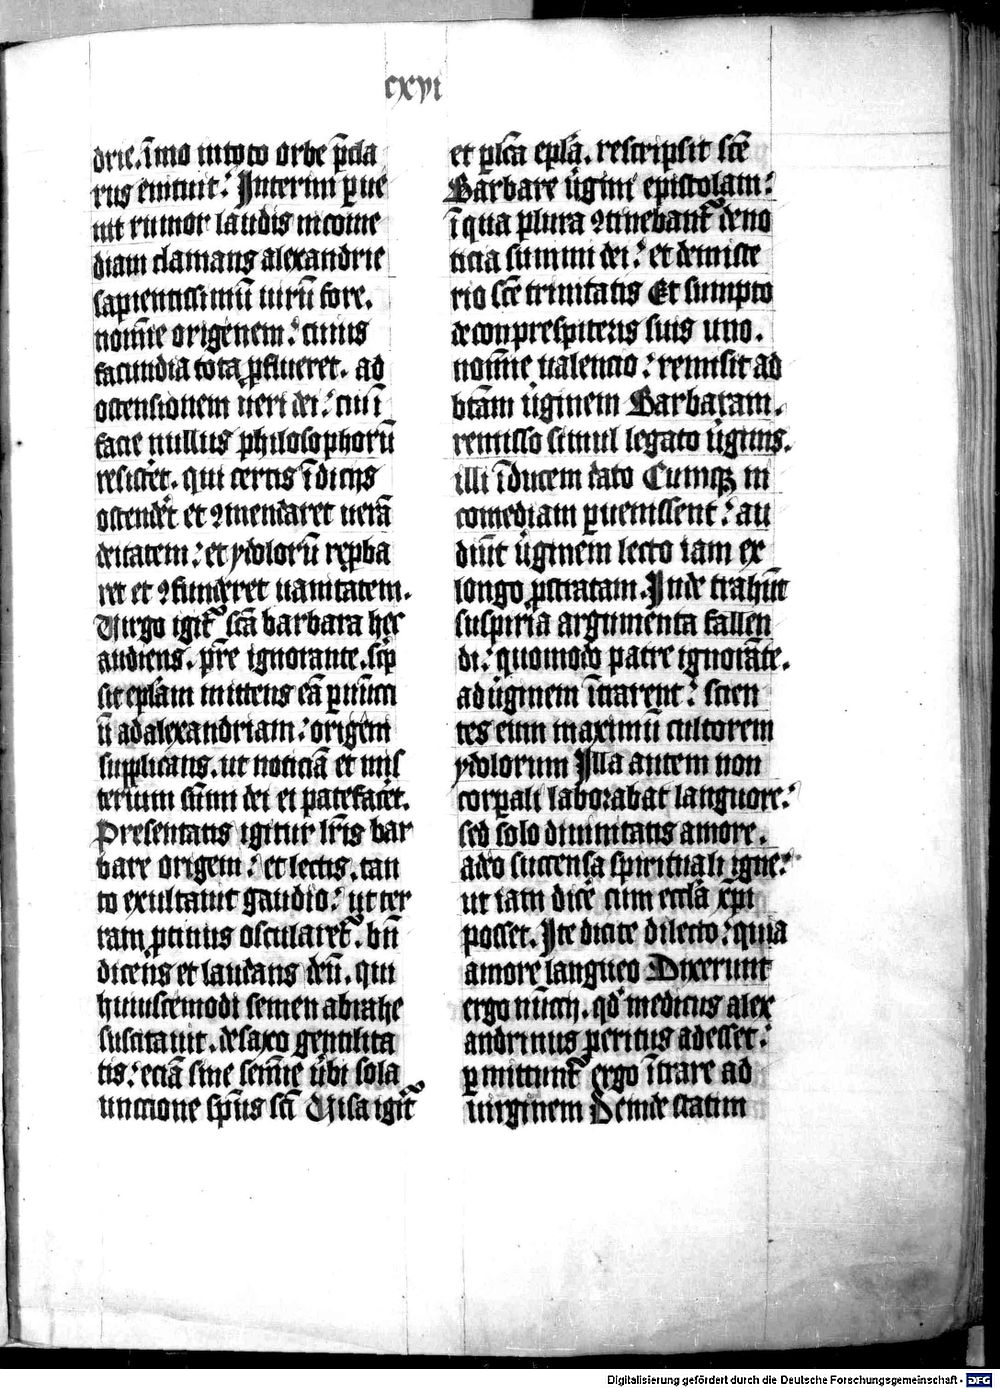 cxvi
drie. īmo in toto orbe p̄cla
rus enituit: Interim ꝑue
nit rumor laudis nicome
diam clamans alexandrie
sapientissimū uirū fore.
nomīe origenem: cuius
facundia tota ꝓflueret. ad
ostensionem ueri dei: cui ī
facie nullus philosophorū
resistēt. qui certis īdicijs
ostendēt et ꝯmendaret uerā
deitatem: et ydolorū repba
ret et ꝯfunderet uanitatem.
Uirgo igit᷑ scā barbara hec
audiens. pr̄e ignorante. sc̄p
sit epl̄am mittens eā ꝑ nūcci
ū ad alexandriam: origem̄
supplicans. ut noticiā et mis
terium sūmi dei ei patefacēt.
Presentatis igitur lr̄is bar
bare origem̄: et lectis. tan
to exultauit gaudio: ut ter
ram ꝓtinus oscularet᷑. bn̄
dicens et laudans deū. qui
huiuscemodi semen abrahe
suscitauit. de saxo gentilita
tis: eciā sine semīe ūbi sola
unccione sp̄us scī Uisa igit᷑
et pl̄ca epl̄a. rescripsit scē
Barbare ūgini epistolam:
ī qua plura ꝯtinebant᷑ de no
ticia summi dei: et de miste
rio scē trinitatis Et sumpto
de conprespiteris suis uno.
nomīe ualencio: remisit ad
btām ūginem Barbaram.
remisso simul legato ūginis.
illi ī ducem dato Cumqꝫ ni
comediam ꝑuenissent: au
diūt ūginem lecto iam ex
longo ꝓstratam. Inde trahūt
suspiria argumenta fallen
di: quomodo patre ignorāte.
ad ūginem ītrarent: scien
tes eum maximū cultorem
ydolorum Illa autem non
corꝑali laborabat languore:
sed solo diuinitatis amore.
adeo succensa spirituali igne:
ut iam dicē cum eccl̄a xp̄i
posset. Ite dicite dilecto: quia
amore langueo Dixerunt
ergo nūccij. qd̄ medicus alex
andrinus peritus adesset:
ꝑmittunt᷑ ergo ītrare ad
uirginem Deinde statim
Digitalisierung gefördert durch die Deutsche Forschungsgemeinschaft - DFG